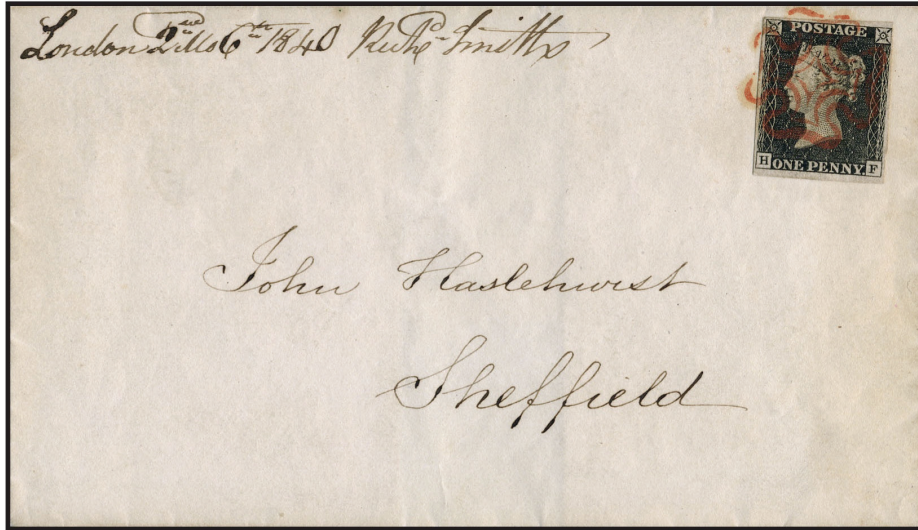 London 6th 1840 Richd Smith
POSTAGE
H ONE PENNY. F
John Haslehurst
Sheffield